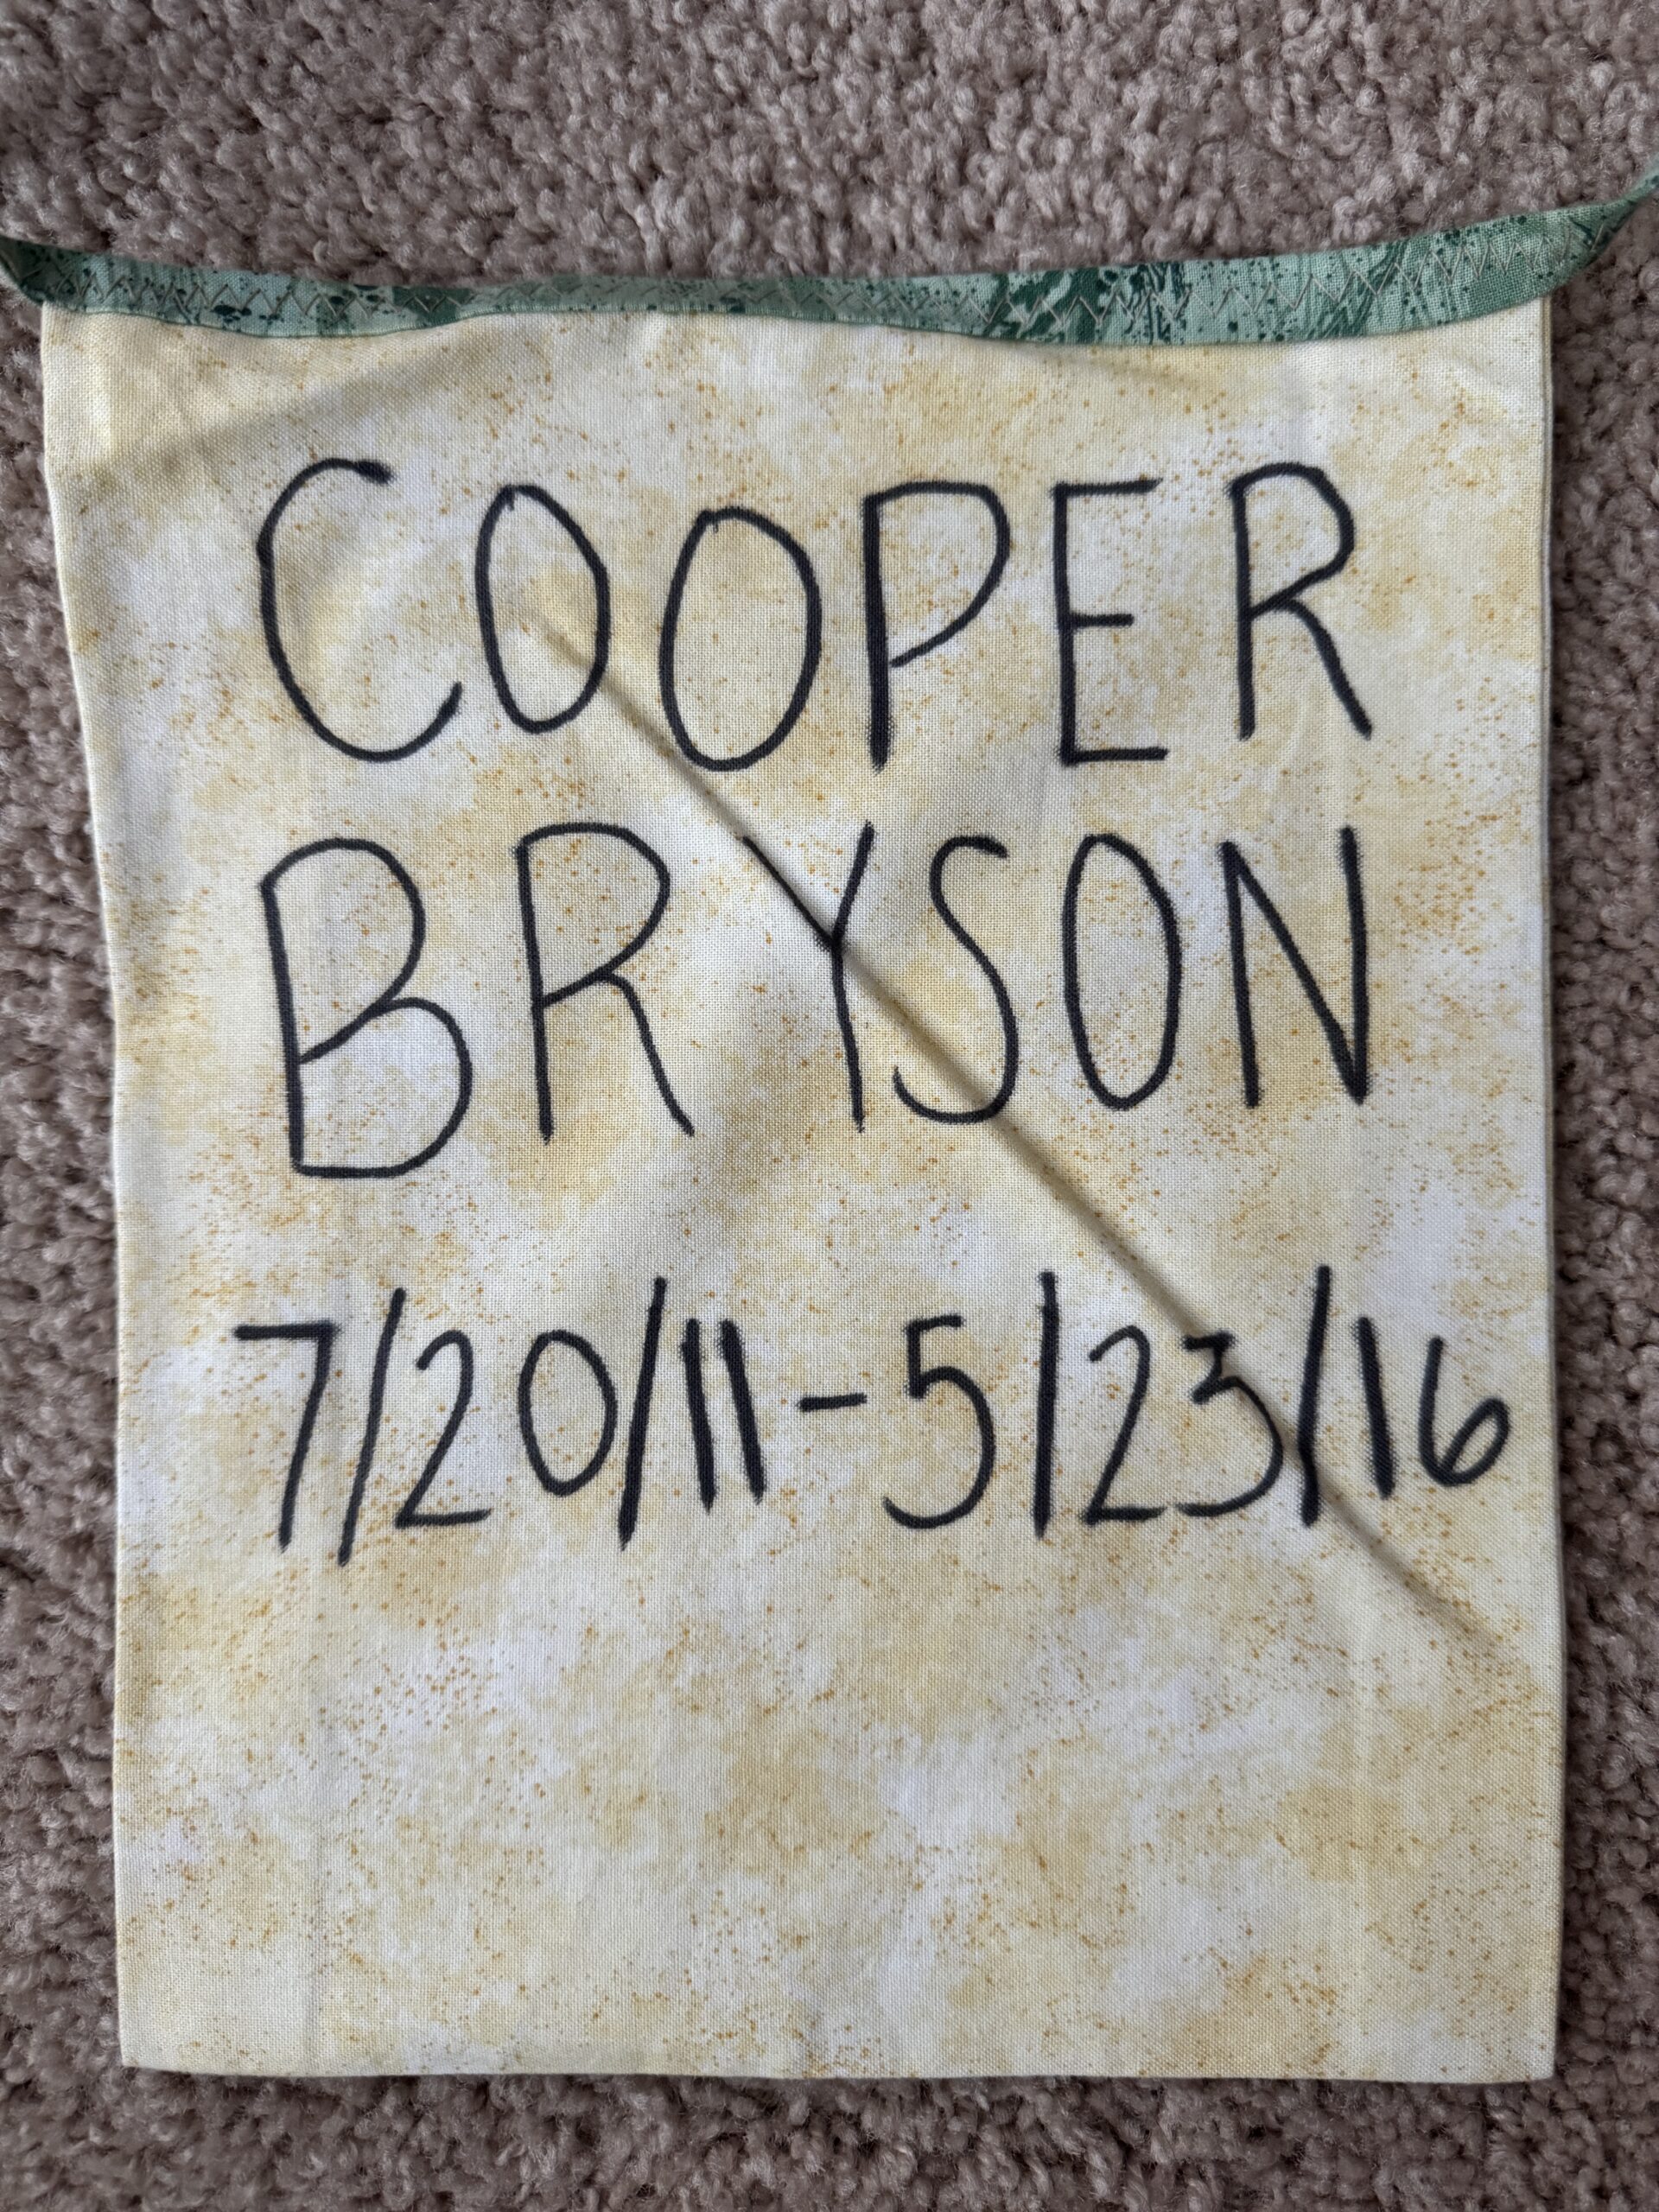 COOPER
BRYSON
7/20/11-5/23/16